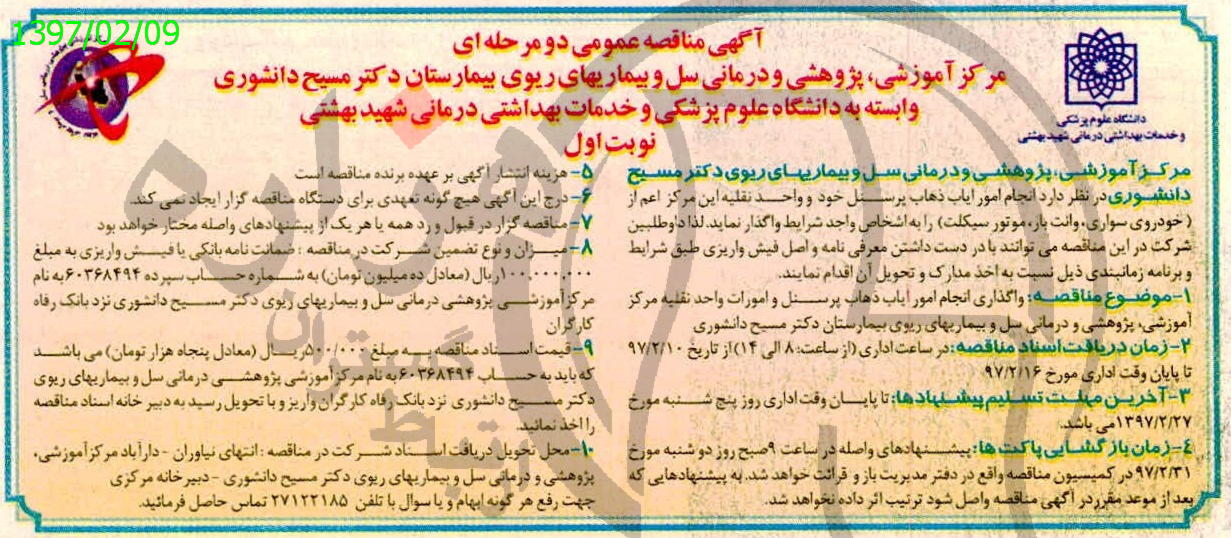 1397/02/09
آگهی مناقصه عمومی دو مرحله ای
مرکز آموزشی، پژوهشی و درمانی سل و بیماریهای ریوی بیمارستان دکتر مسیح دانشوری
وابسته به دانشگاه علوم پزشکی و خدمات بهداشتی درمانی شهید بهشتی
نوبت اول
دانشگاه علوم پزشکی
و خدمات بهداشتی درمانی شهید بهشتی
مرکز آموزشی، پژوهشی و درمانی سل و بیماریهای ریوی دکتر مسیح
دانشوری در نظر دارد انجام امور ایاب ذهاب پرسنل خود و واحد نقلیه این مرکز اعم از
(خودروی سواری، وانت بار، موتور سیکلت) را به اشخاص واجد شرایط واگذار نماید. لذا داوطلبین
شرکت در این مناقصه می توانند با در دست داشتن معرفی نامه و اصل فیش واریزی طبق شرایط
و برنامه زمانبندی ذیل نسبت به اخذ مدارک و تحویل آن اقدام نمایند.
۱-موضوع مناقصه: واگذاری انجام امور ایاب ذهاب پرسنل و امورات واحد نقلیه مرکز
آموزشی، پژوهشی و درمانی سل و بیماریهای ریوی بیمارستان دکتر مسیح دانشوری
۲- زمان دریافت اسناد مناقصه: در ساعت اداری (از ساعت: ۸ الی ۱۴) از تاریخ ۹۷/۲/۱۰
تا پایان وقت اداری مورخ ۹۷/۲/۱۶
۳-آخرین مهلت تسلیم پیشنهادها: تا پایان وقت اداری روز پنج شنبه مورخ
۱۳۹۷/۲/۲۷ می باشد.
۴-زمان بازگشایی پاکت ها: پیشنهادهای واصله در ساعت ۹صبح روز دوشنبه مورخ
۹۷/۲/۳۱ در کمیسیون مناقصه واقع در دفتر مدیریت باز و قرائت خواهد شد. به پیشنهادهایی که
بعد از موعد مقرر در آگهی مناقصه واصل شود ترتیب اثر داده نخواهد شد.
۵- هزینه انتشار آگهی بر عهده برنده مناقصه است
۶- درج این آگهی هیچ گونه تعهدی برای دستگاه مناقصه گزار ایجاد نمی کند.
۷- مناقصه گزار در قبول و رد همه یا هر یک از پیشنهادهای واصله مختار خواهد بود
۸- میزان و نوع تضمین شرکت در مناقصه : ضمانت نامه بانکی یا فیش واریزی به مبلغ
۱۰۰.۰۰۰.۰۰۰ریال (معادل ده میلیون تومان) به شماره حساب سپرده ۶۰۳۶۸۴۹۴به نام
مرکز آموزشی پژوهشی درمانی سل و بیماریهای ریوی دکتر مسیح دانشوری نزد بانک رفاه
کارگران
۹- قیمت اسناد مناقصه به مبلغ ۵۰۰/۰۰۰ریال (معادل پنجاه هزار تومان) می باشد
که باید به حساب ۶۰۳۶۸۴۹۴به نام مرکز آموزشی پژوهشی درمانی سل و بیماریهای ریوی
دکتر مسیح دانشوری نزد بانک رفاه کارگران واریز و با تحویل رسید به دبیر خانه اسناد مناقصه
را اخذ نمائید.
۱۰-محل تحویل دریافت اسناد شرکت در مناقصه : انتهای نیاوران - دارآباد مرکز آموزشی،
پژوهشی و درمانی سل و بیماریهای ریوی دکتر مسیح دانشوری - دبیرخانه مرکزی
جهت رفع هر گونه ابهام و یا سوال با تلفن ۲۷۱۲۲۱۸۵ تماس حاصل فرمائید.
هزاره